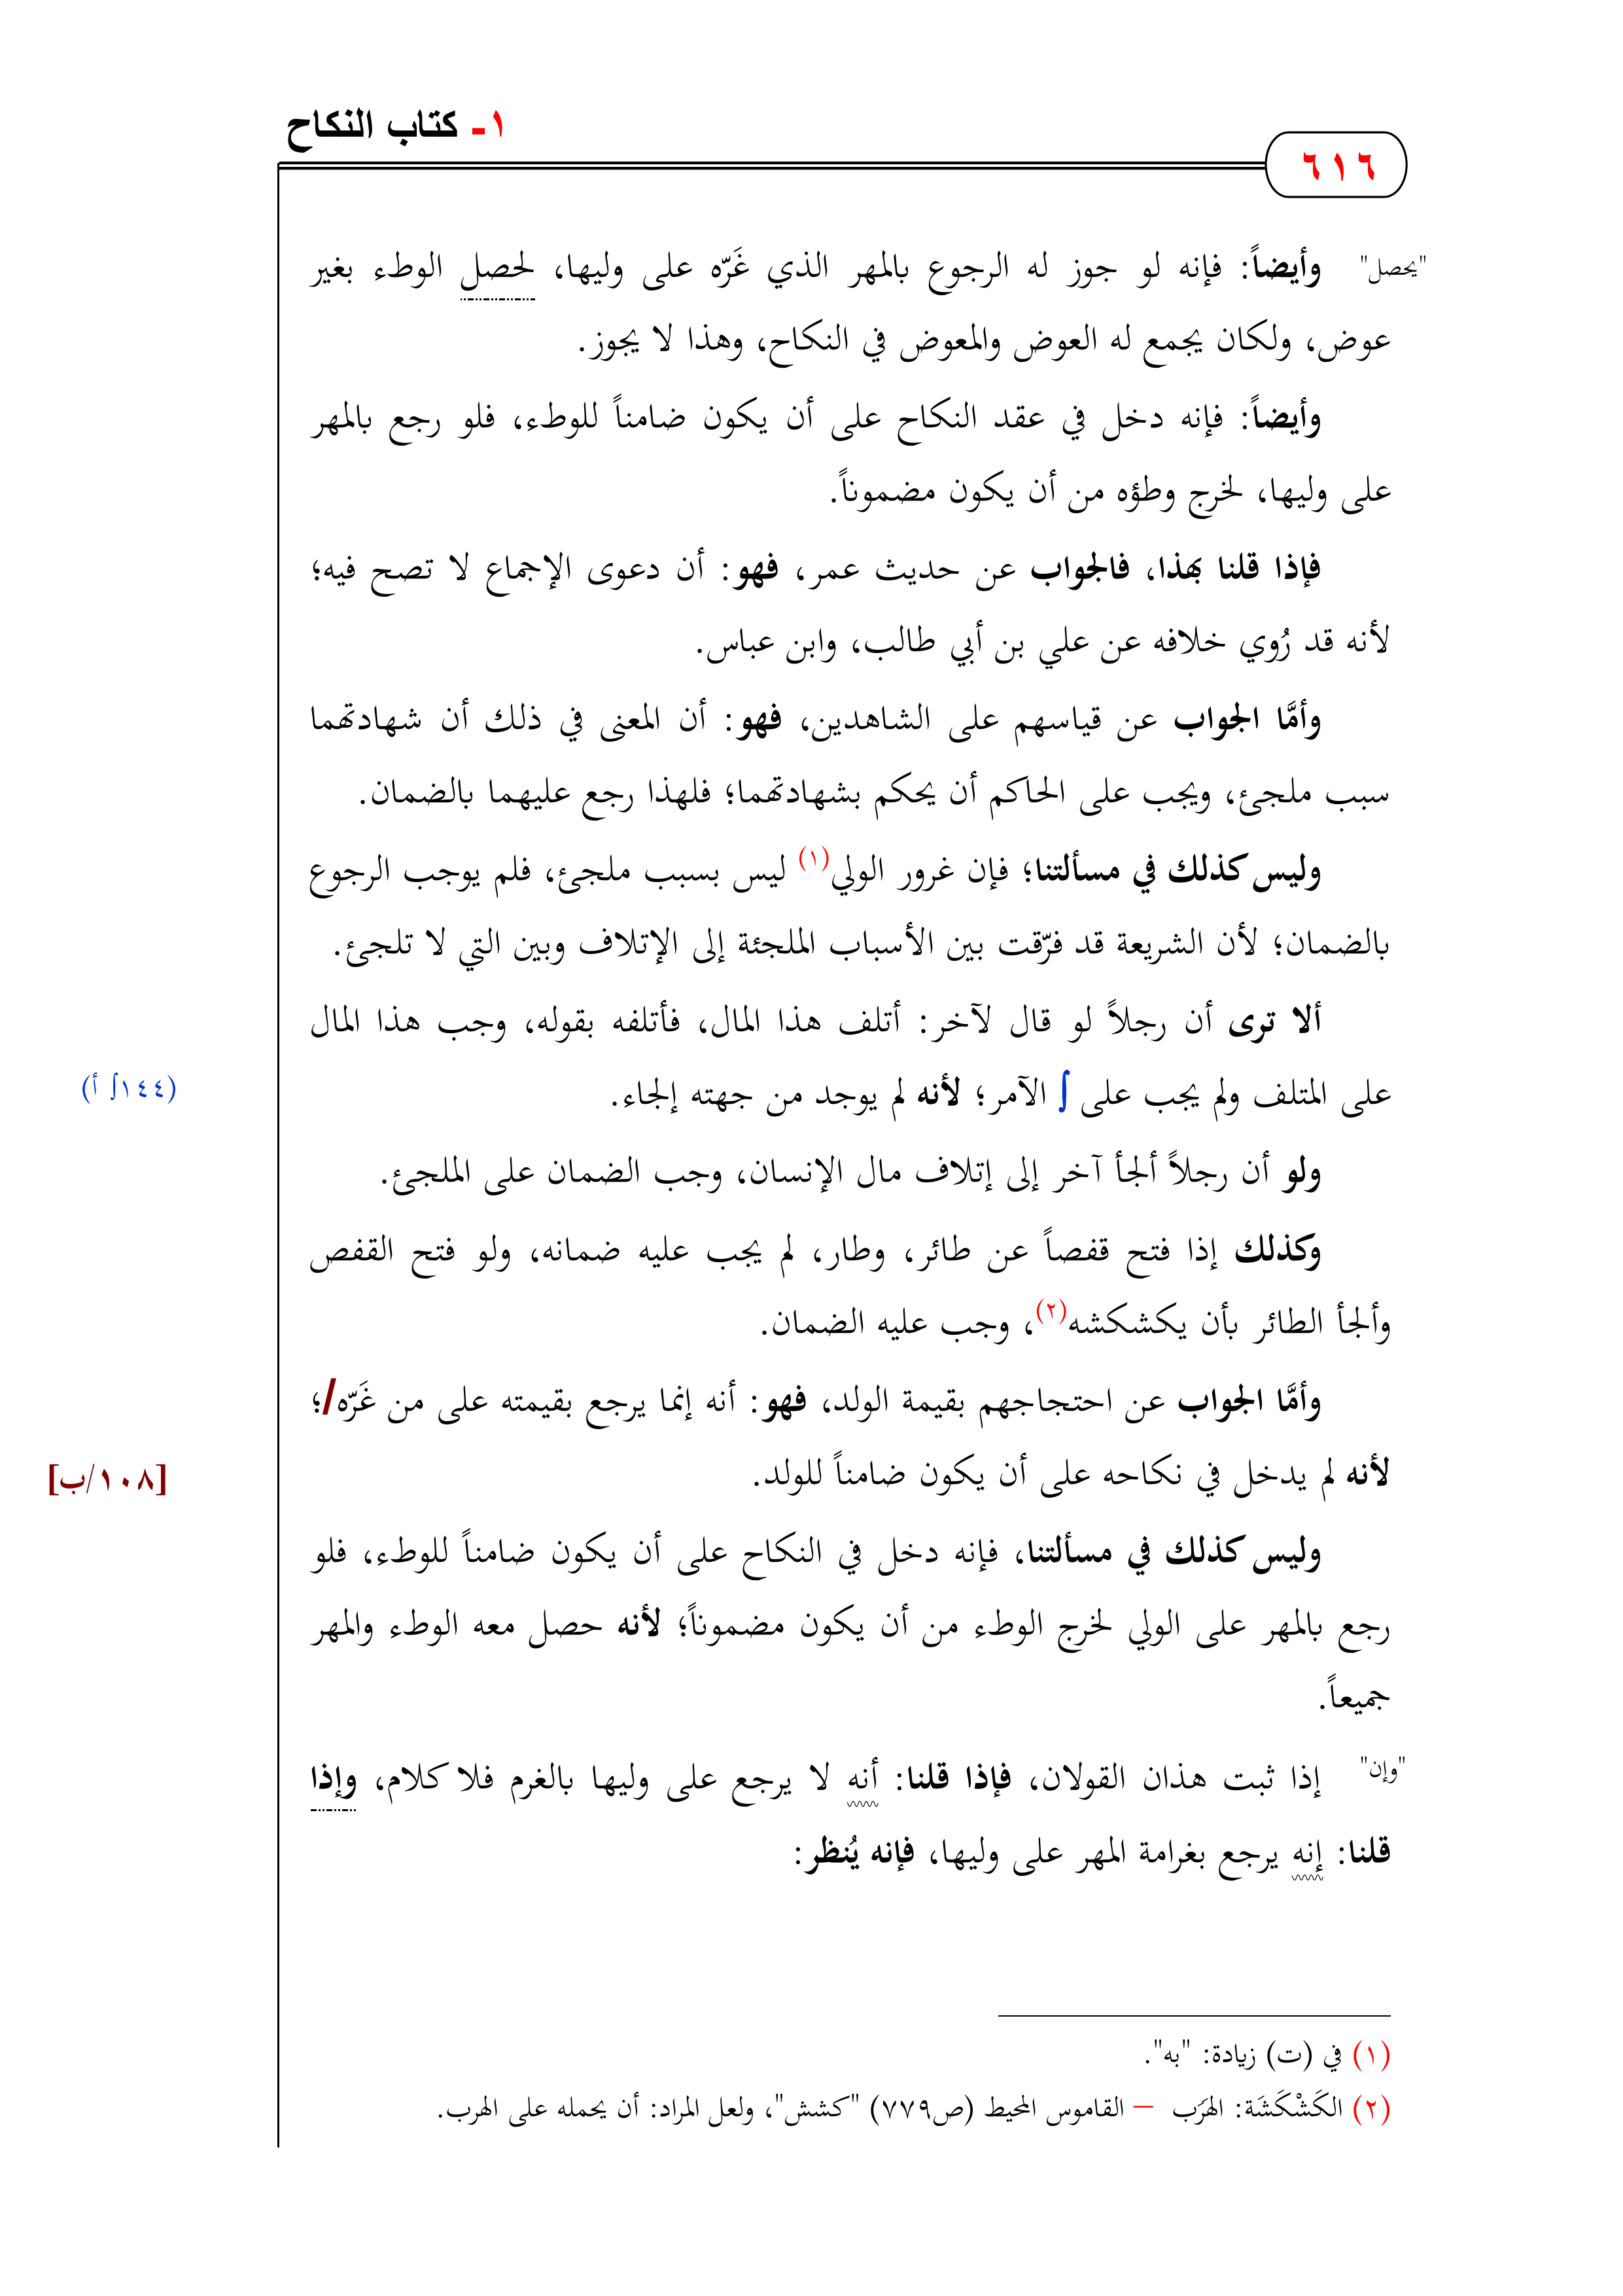 ١- كتاب النكاح
٦١٦
"يحصل"
وأيضاً: فإنه لو جوز له الرجوع بالمهر الذي غَرّه على وليها، لحصل الوطء بغير
عوض، ولكان يجمع له العوض والمعوض في النكاح، وهذا لا يجوز.
وأيضاً: فإنه دخل في عقد النكاح على أن يكون ضامناً للوطء، فلو رجع بالمهر
على وليها، لخرج وطؤه من أن يكون مضموناً.
فإذا قلنا بهذا، فالجواب عن حديث عمر، فهو: أن دعوى الإجماع لا تصح فيه؛
لأنه قد رُوي خلافه عن علي بن أبي طالب، وابن عباس.
وأمَّا الجواب عن قياسهم على الشاهدين، فهو: أن المعنى في ذلك أن شهادتهما
سبب ملجئ، ويجب على الحاكم أن يحكم بشهادتهما؛ فلهذا رجع عليهما بالضمان.
وليس كذلك في مسألتنا؛ فإن غرور الولي(١) ليس بسبب ملجئ، فلم يوجب الرجوع
بالضمان؛ لأن الشريعة قد فرّقت بين الأسباب الملجئة إلى الإتلاف وبين التي لا تلجئ.
ألا ترى أن رجلاً لو قال لآخر: أتلف هذا المال، فأتلفه بقوله، وجب هذا المال
على المتلف ولم يجب على ∫ الآمر؛ لأنه لم يوجد من جهته إلجاء.
(١٤٤∫ أ)
ولو أن رجلاً ألجأ آخر إلى إتلاف مال الإنسان، وجب الضمان على الملجئ.
وكذلك إذا فتح قفصاً عن طائر، وطار، لم يجب عليه ضمانه، ولو فتح القفص
وألجأ الطائر بأن يكشكشه(٢)، وجب عليه الضمان.
وأمَّا الجواب عن احتجاجهم بقيمة الولد، فهو: أنه إنما يرجع بقيمته على من غَرّه/؛
لأنه لم يدخل في نكاحه على أن يكون ضامناً للولد.
[١٠٨/ب]
وليس كذلك في مسألتنا، فإنه دخل في النكاح على أن يكون ضامناً للوطء، فلو
رجع بالمهر على الولي لخرج الوطء من أن يكون مضموناً؛ لأنه حصل معه الوطء والمهر
جميعاً.
"وإن"
إذا ثبت هذان القولان، فإذا قلنا: أنه لا يرجع على وليها بالغرم فلا كلام، وإذا
قلنا: إنه يرجع بغرامة المهر على وليها، فإنه يُنظر:
(١) في (ت) زيادة: "به".
(٢) الكَشْكَشَة: الهرَب – القاموس المحيط (ص٧٧٩) "كشش"، ولعل المراد: أن يحمله على الهرب.